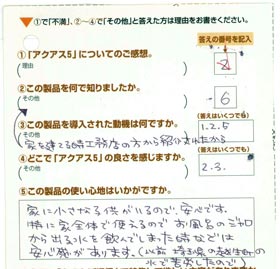 ①で「不満」、②〜④で「その他」と答えた方は理由をお書きください。
答えの番号を記入
①「アクアス5」についてのご感想。
(理由
②この製品を何で知りましたか。
6
(その他
③この製品を導入された動機は何ですか。
(答えはいくつでも)
1.2.5
(その他
家を建てる時工務店の方から紹介されたから
④どこで「アクアス5」の良さを感じますか
(答えはいくつでも)
2.3.
(その他
⑤この製品の使い心地はいかがですか。
家に小さな子供がいるので、安心です。
特に家全体で使えるのでお風呂のシャワー
から出る水を飲んでしまった時などは
安心感があります。(以前
水で苦労したので)